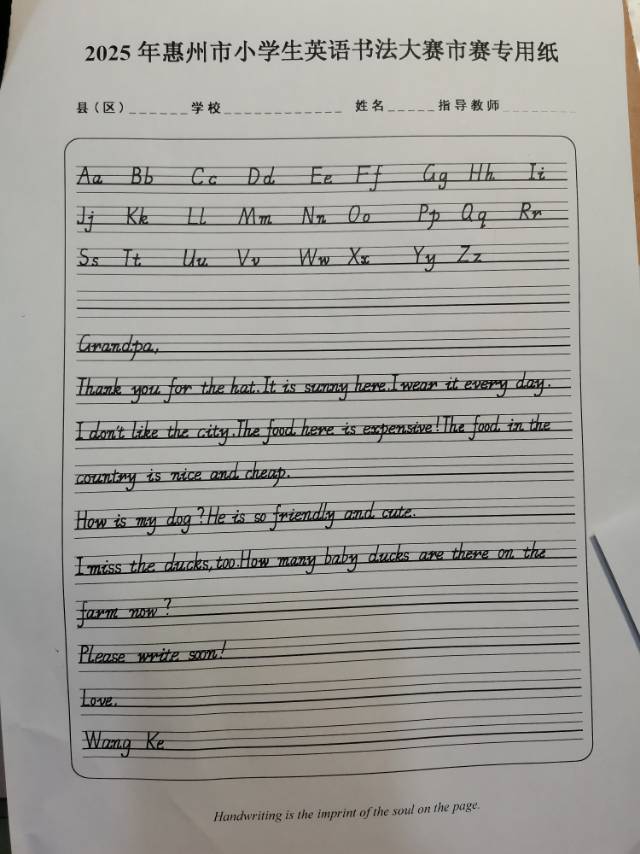 2025 年惠州市小学生英语书法大赛市赛专用纸
县（区）______学校____________ 姓名_____指导教师________
Aa Bb Cc Dd Ee Ff Gg Hh Ii
Jj Kk Ll Mm Nn Oo Pp Qq Rr
Ss Tt Uu Vv Ww Xx Yy Zz
Grandpa,
Thank you for the hat.It is sunny here.I wear it every day.
I don't like the city.The food here is expensive!The food in the
country is nice and cheap.
How is my dog?He is so friendly and cute.
I miss the ducks,too.How many baby ducks are there on the
farm now?
Please write soon!
Love,
Wang Ke
Handwriting is the imprint of the soul on the page.